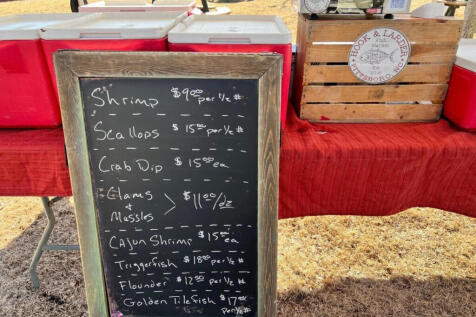 HOOK & LARDER
Fish Market
PITTSBORO NC
Shrimp $9⁰⁰ per ½ #
Scallops $15⁰⁰ per ½ #
Crab Dip $15⁰⁰ ea
Clams
+
Mussles > $11⁰⁰/dz
Cajun Shrimp $15⁰⁰ ea
Triggerfish $18⁰⁰ per ½ #
Flounder $12⁵⁰ per ½ #
Golden Tilefish $17⁰⁰
per ½ #